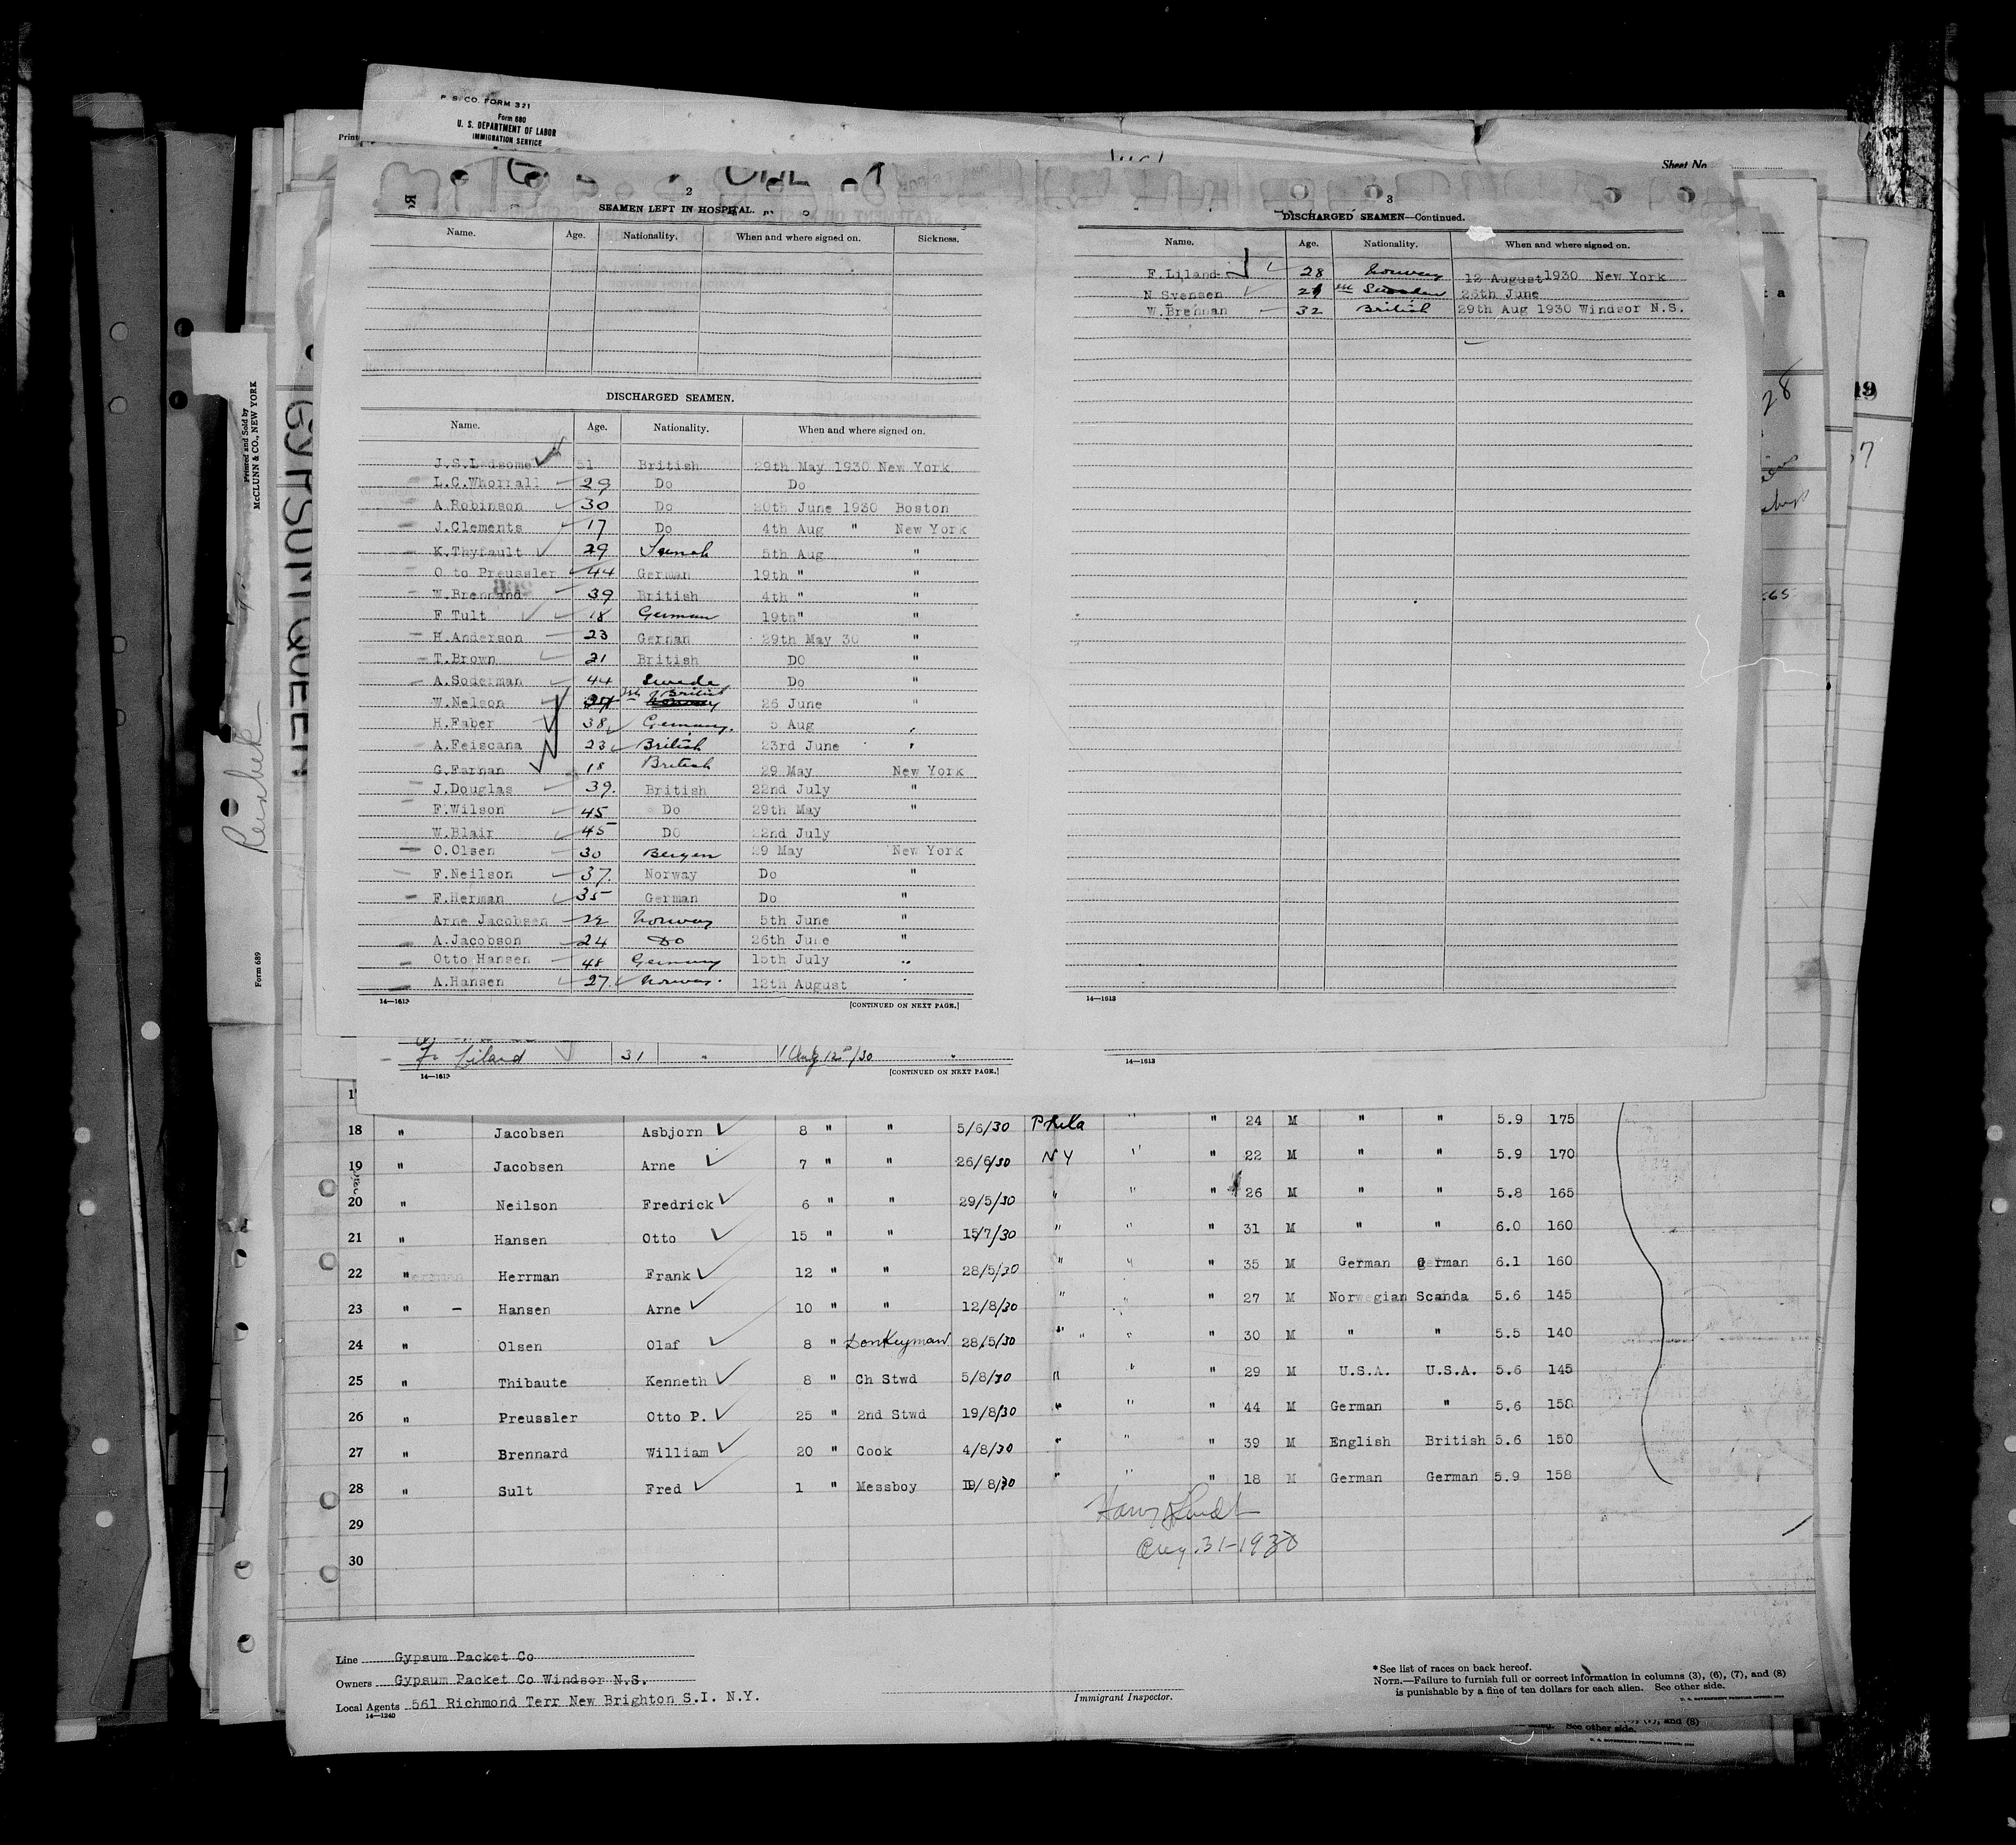 P. S. CO. FORM 321
Form 680
U. S. DEPARTMENT OF LABOR
IMMIGRATION SERVICE
Sheet No.
2
SEAMEN LEFT IN HOSPITAL.
Name. Age. Nationality. When and where signed on. Sickness.
DISCHARGED SEAMEN.
Name. Age. Nationality. When and where signed on.
J.S.Ledsome 51 British 29th May 1930 New York
L.C.Whorrall 29 Do Do
A.Robinson 30 Do 20th June 1930 Boston
J.Clements 17 Do 4th Aug " New York
K.Thyfault 29 French 5th Aug "
O to Preussler 44 German 19th " "
W.Brennand 39 British 4th " "
F Tult 18 German 19th " "
H.Anderson 23 German 29th May 30 "
T.Brown 21 British DO "
A.Soderman 44 Swede Do "
W.Nelson British 26 June "
H.Faber 38 Germany. 5 Aug "
A.Feiscana 23 British 23rd June "
G.Farhan 18 British 29 May New York
J.Douglas 39. British 22nd July "
F.Wilson 45 Do 29th May "
W.Blair 45 DO 22nd July
O.Olsen 30 Bergen 29 May New York
F.Neilson 37. Norway Do "
F.Herman 35 German Do "
Arne Jacobsen 22 Norway 5th June "
A.Jacobson 24 Do 26th June "
Otto Hansen 48 Germany 15th July "
A.Hansen 27 Norway. 12th August "
14—1613 [CONTINUED ON NEXT PAGE.]
3
DISCHARGED SEAMEN—Continued.
Name. Age. Nationality. When and where signed on.
F.Liland 28 Norway 12 August 1930 New York
N Svensen 21 Sweden 26th June
W.Brennan 32 British 29th Aug 1930 Windsor N.S.
14—1613
Fr Liland 31 " Aug 12th/30 "
14—1613 [CONTINUED ON NEXT PAGE.]
14—1613
18 " Jacobsen Asbjorn 8 " " 5/6/30 Phila " " 24 M " " 5.9 175
19 " Jacobsen Arne 7 " " 26/6/30 NY " " 22 M " " 5.9 170
20 " Neilson Fredrick 6 " " 29/5/30 " " " 26 M " " 5.8 165
21 " Hansen Otto 15 " " 15/7/30 " " " 31 M " " 6.0 160
22 " Herrman Frank 12 " " 28/5/30 " " " 35 M German German 6.1 160
23 " - Hansen Arne 10 " " 12/8/30 " " " 27 M Norwegian Scanda 5.6 145
24 " Olsen Olaf 8 " Donkeyman 28/5/30 " " " " 30 M " " 5.5 140
25 " Thibaute Kenneth 8 " Ch Stwd 5/8/30 " " " 29 M U.S.A. U.S.A. 5.6 145
26 " Preussler Otto P. 25 " 2nd Stwd 19/8/30 " " " 44 M German " 5.6 150
27 " Brennard William 20 " Cook 4/8/30 " " " 39 M English British 5.6 150
28 " Sult Fred 1 " Messboy 19/8/30 " " " 18 M German German 5.9 158
29
30
Aug. 31-1930
Line Gypsum Packet Co
Owners Gypsum Packet Co Windsor N.S.
Local Agents 561 Richmond Terr New Brighton S.I. N.Y.
14—1240
Immigrant Inspector.
* See list of races on back hereof.
NOTE.—Failure to furnish full or correct information in columns (3), (6), (7), and (8)
is punishable by a fine of ten dollars for each alien. See other side.
and (8)
See other side.
Printed and Sold by
McCLUNN & CO., NEW YORK
Form 689
GYPSUM QUEEN